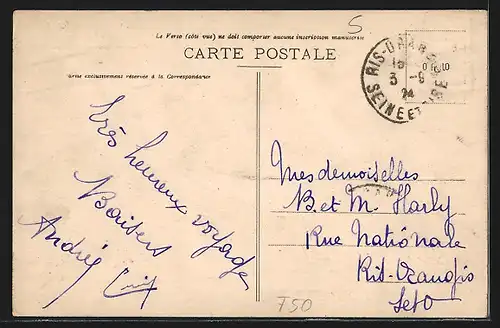 Le Verso (côté vue) ne doit comporter aucune inscription manuscrite
5
CARTE POSTALE
Partie exclusivement réservée à la Correspondance
RIS-ORANGIS
3 -9
24
SEINE ET OISE
très heureux voyage
Baisers
Andrée
Mesdemoiselles
B. et M. Harly
Rue Nationale
Ris-Orangis
Seto
750